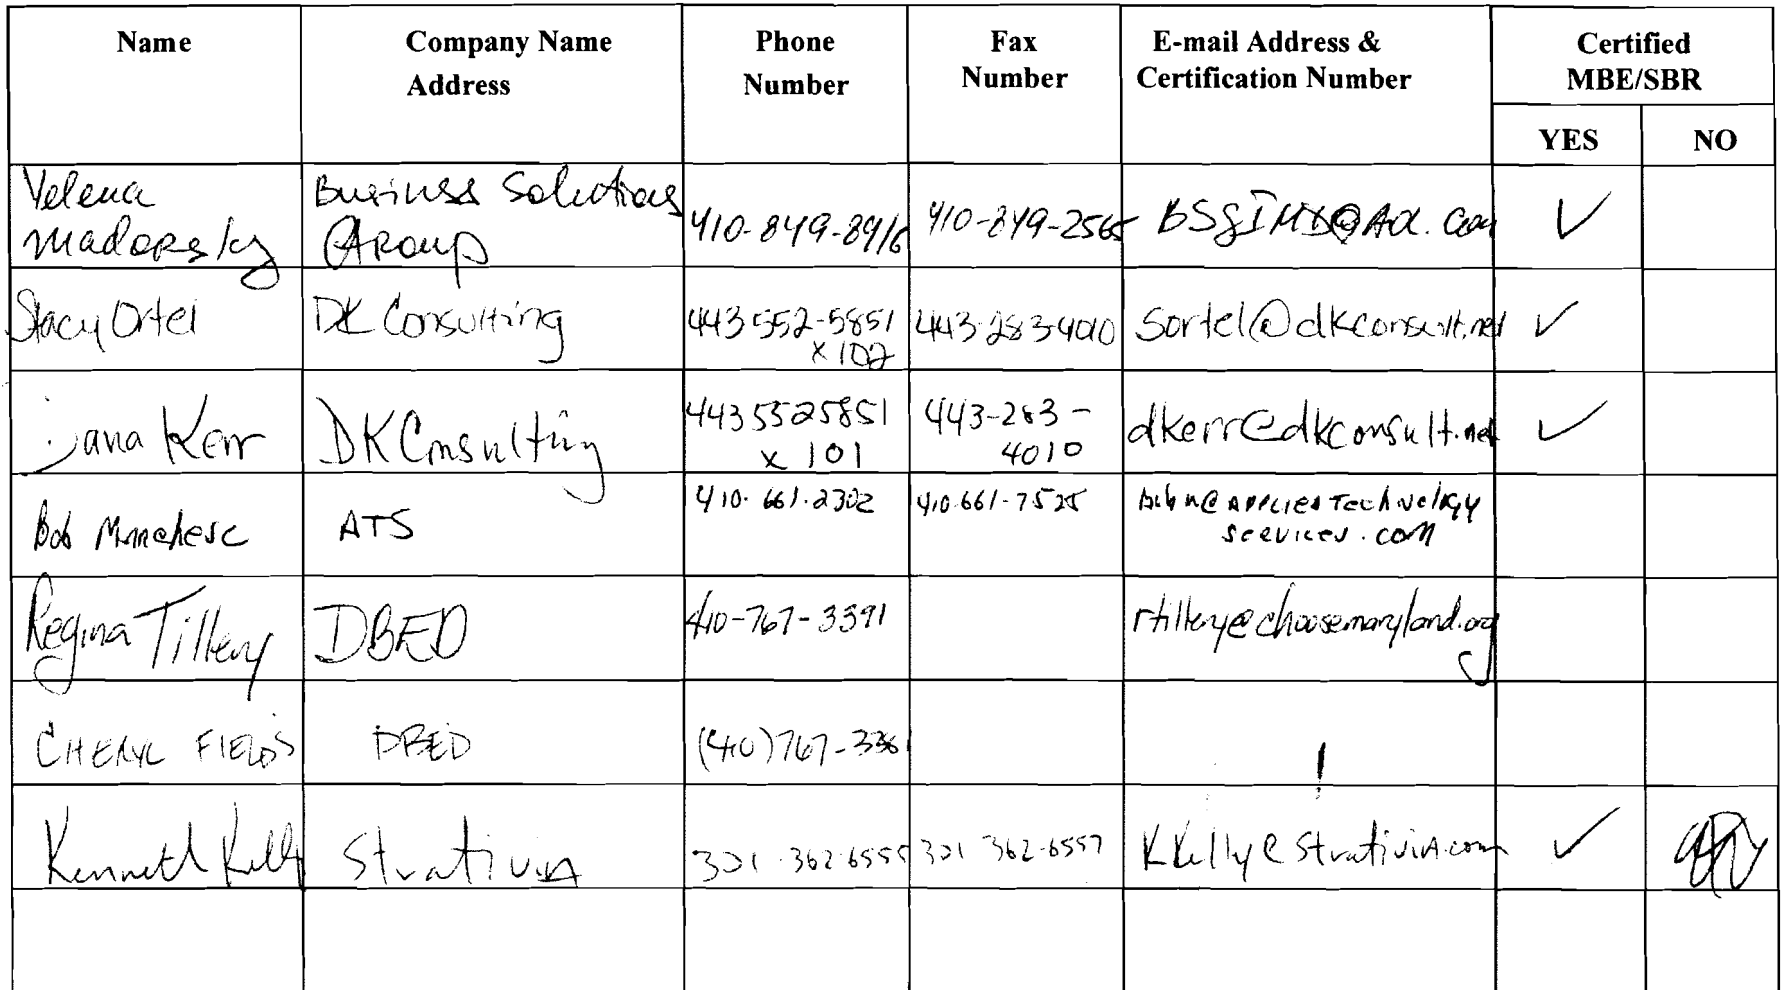 Name
Company Name
Address
Phone
Number
Fax
Number
E-mail Address &
Certification Number
Certified
MBE/SBR
YES
NO
Yelena
Madorsky
Business Solutions
Group
410-849-8916
410-849-2565
Stacy Ortel
DK Consulting
443 552-5851
x 102
443-283-4010
sortel@dkconsult.net
Dana Kerr
DK Consulting
443 552 5851
x 101
443-283-
4010
dkerr@dkconsult.net
Bob
ATS
410.661.2302
410.661-7525
@APPLIED Technology
Services.com
Regina Tillery
DBED
410-767-3391
rtillery@choosemaryland.org
CHERYL FIELDS
DBED
(410)767-
Kenneth Kelly
Strativia
301 362-6555
301 362-6557
KKelly@Strativia.com